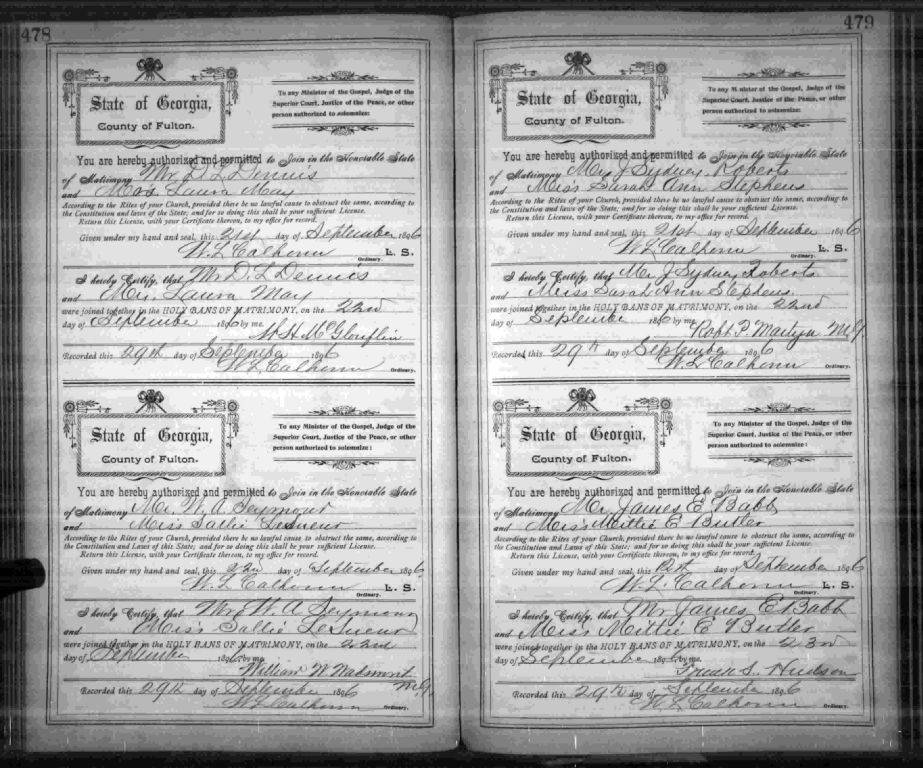 478
State of Georgia,
County of Fulton.
To any Minister of the Gospel, Judge of the
Superior Court, Justice of the Peace, or other
person authorized to solemnize:
You are hereby authorized and permitted to Join in the Honorable State
of Matrimony Mr. D. L. Dennis
and Mrs. Laura May
According to the Rites of your Church, provided there be no lawful cause to obstruct the same, according to
the Constitution and laws of the State; and for so doing this shall be your sufficient License.
Return this License, with your Certificate thereon, to my office for record.
Given under my hand and seal, this 21st day of September 1896
W. L. Calhoun L. S.
Ordinary.
I hereby Certify, that Mr. D. L. Dennis
and Mrs. Laura May
were joined together in the HOLY BANS OF MATRIMONY, on the 22nd
day of September 1896 by me.
Recorded this 29th day of September 1896
W. L. Calhoun Ordinary.
State of Georgia,
County of Fulton.
To any Minister of the Gospel, Judge of the
Superior Court, Justice of the Peace, or other
person authorized to solemnize:
You are hereby authorized and permitted to Join in the Honorable State
of Matrimony Mr. W. A. Seymour
and Miss Sallie LeSueur
According to the Rites of your Church, provided there be no lawful cause to obstruct the same, according to the
Constitution and Laws of this State; and for so doing this shall be your sufficient License.
Return this License, with your Certificate thereon, to my office for record.
Given under my hand and seal, this 22nd day of September 1896
W. L. Calhoun L. S.
Ordinary.
I hereby Certify, that Mr. W. A. Seymour
and Miss Sallie LeSueur
were joined together in the HOLY BANS OF MATRIMONY, on the 22nd
day of September 1896 by me.
William W. M.G.
Recorded this 29th day of September 1896
W. L. Calhoun Ordinary.
479
State of Georgia,
County of Fulton.
To any Minister of the Gospel, Judge of the
Superior Court, Justice of the Peace, or other
person authorized to solemnize:
You are hereby authorized and permitted to Join in the Honorable State
of Matrimony Mr. J Sydney Roberts
and Miss Sarah Ann Stephens
According to the Rites of your Church, provided there be no lawful cause to obstruct the same, according to
the Constitution and laws of the State; and for so doing this shall be your sufficient License.
Return this License, with your Certificate thereon, to my office for record.
Given under my hand and seal, this 21st day of September 1896
W. L. Calhoun L. S.
Ordinary.
I hereby Certify, that Mr. J Sydney Roberts
and Miss Sarah Ann Stephens
were joined together in the HOLY BANS OF MATRIMONY, on the 22nd
day of September 1896 by me.
Robt. P. Martyn M.G.
Recorded this 29th day of September 1896
W. L. Calhoun Ordinary.
State of Georgia,
County of Fulton.
To any Minister of the Gospel, Judge of the
Superior Court, Justice of the Peace, or other
person authorized to solemnize:
You are hereby authorized and permitted to Join in the Honorable State
of Matrimony Mr. James E. Babb
and Miss Mittie E Butler
According to the Rites of your Church, provided there be no lawful cause to obstruct the same, according to
the Constitution and Laws of this State; and for so doing this shall be your sufficient License.
Return this License, with your Certificate thereon, to my office for record.
Given under my hand and seal, this 21st day of September 1896
W. L. Calhoun L. S.
Ordinary.
I hereby Certify, that Mr James E. Babb
and Miss Mittie E Butler
were joined together in the HOLY BANS OF MATRIMONY, on the 23rd
day of September 1896 by me.
S. Hudson
Recorded this 29th day of September 1896
W. L. Calhoun Ordinary.